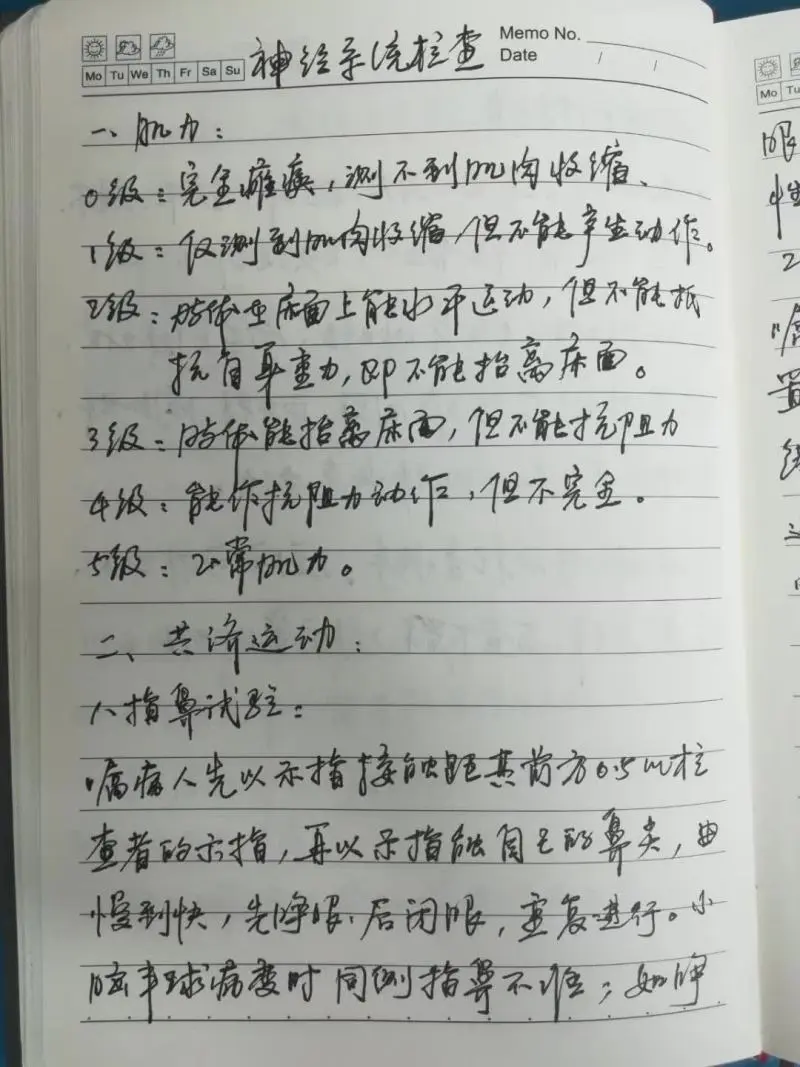 Memo No.
Date / /
Mo Tu We Th Fr Sa Su
神经系统检查
一、肌力：
0级：完全瘫痪，测不到肌肉收缩、
1级：仅测到肌肉收缩，但不能产生动作。
2级：肢体在床面上能水平运动，但不能抵
抗自身重力，即不能抬离床面。
3级：肢体能抬离床面，但不能抗阻力
4级：能作抗阻力动作，但不完全。
5级：正常肌力。
二、共济运动：
1、指鼻试验：
嘱病人先以示指接触距其前方0.5m检
查者的示指，再以示指触自己的鼻尖，由
慢到快，先睁眼、后闭眼，重复进行。小
脑半球病变时同侧指鼻不准；如睁
Mo Tu
眼
性
2
嘱
置